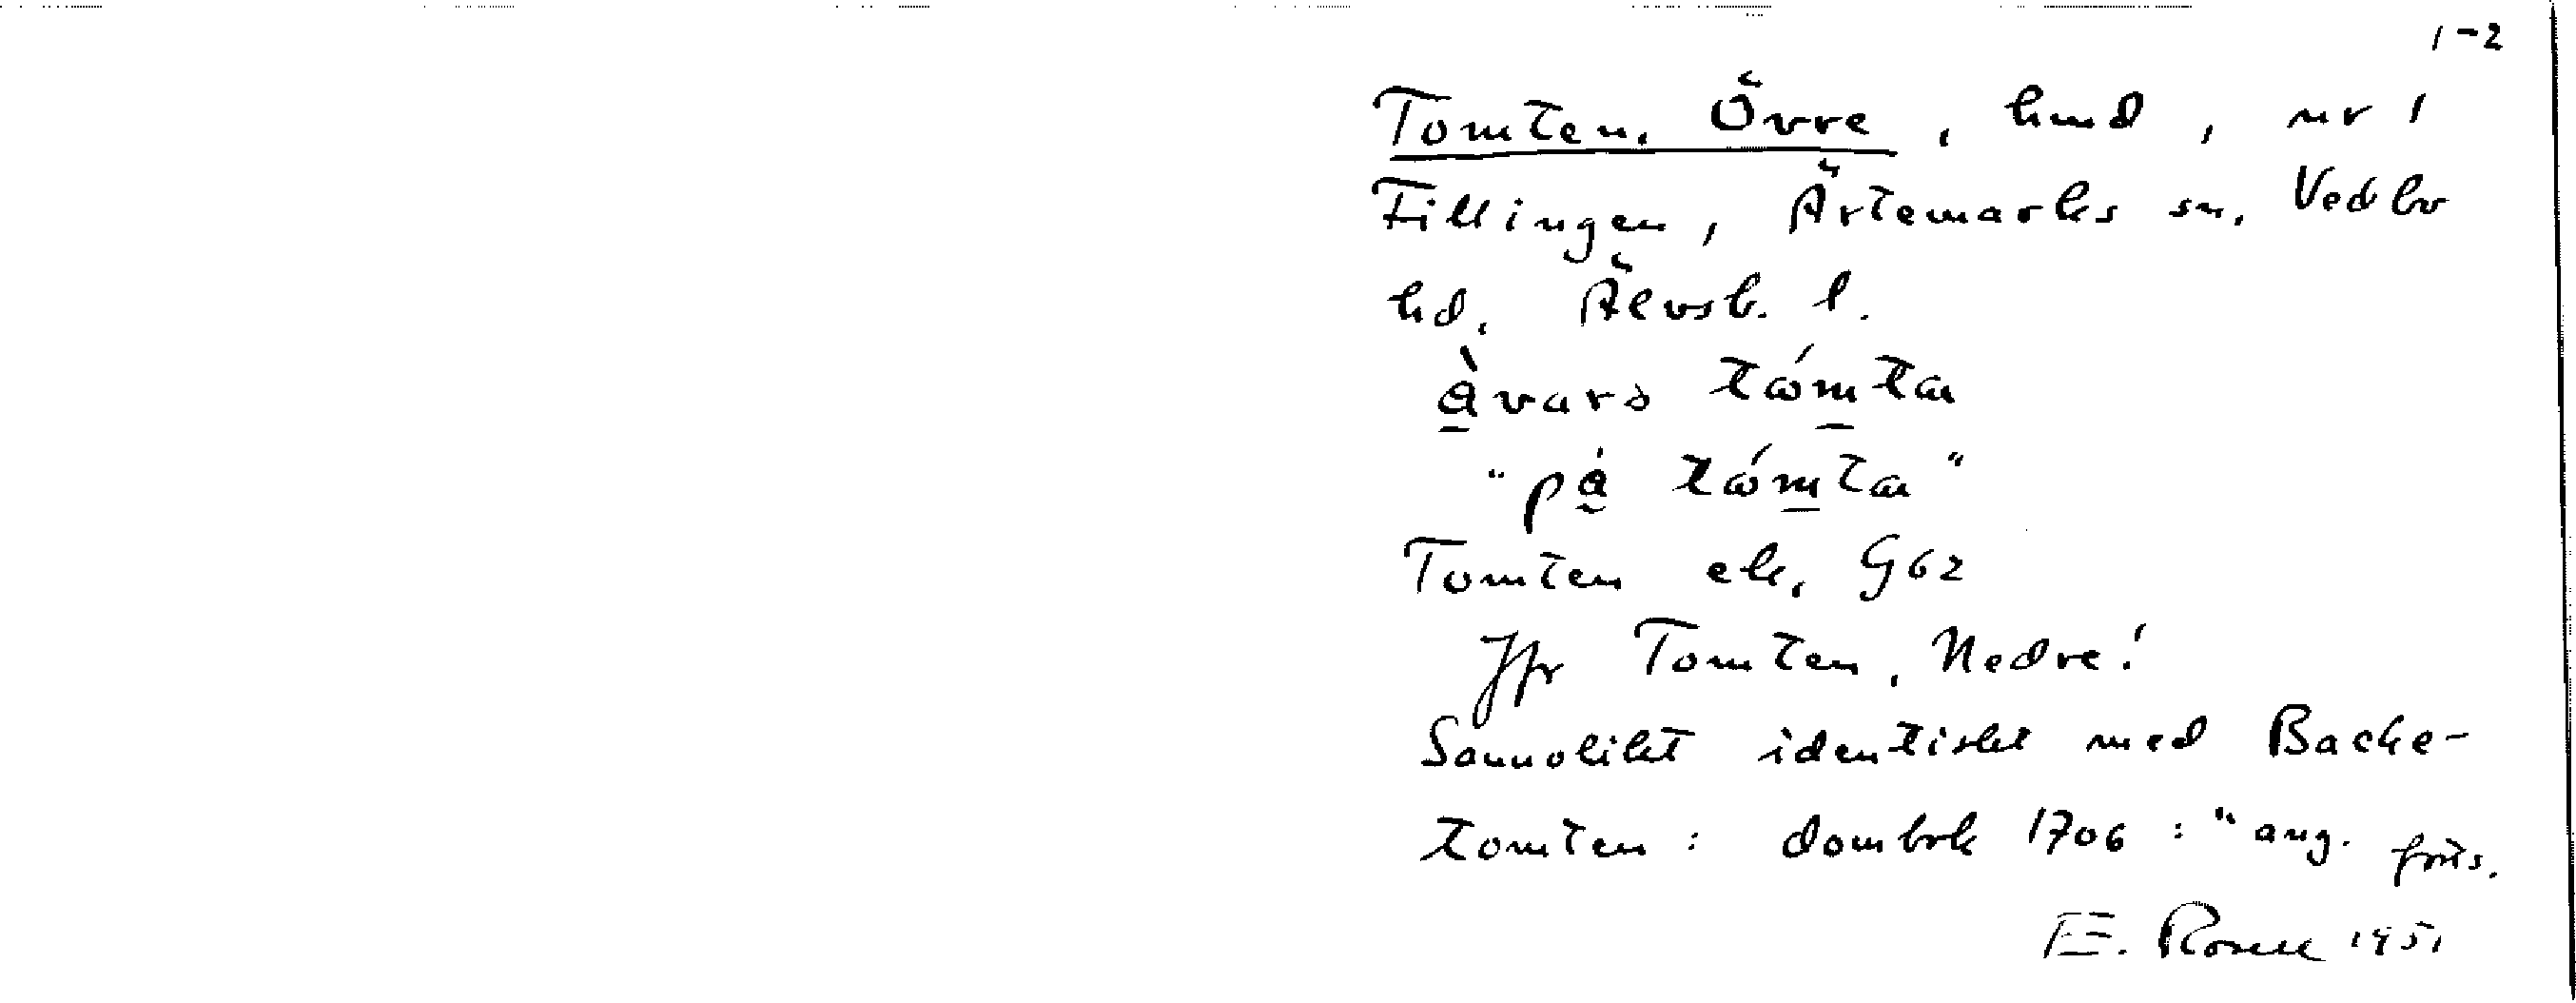 1-2
Tomten, Övre, hmd, nr 1
Fillingen, Ärtemarks sn, Vedbo
hd, Älvsb. l.
"på tómta"
Tomten ek. G62
Jfr Tomten, Nedre!
Sannolikt identiskt med Backe-
tomten: dombok 1706: "ang. forts.
E. Rosell 1951